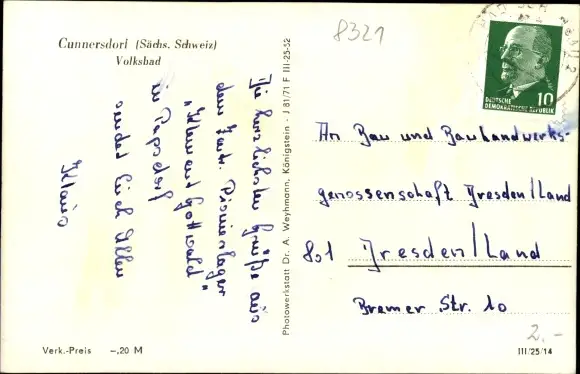 Cunnersdorf (Sächs. Schweiz)
Volksbad
8321
Die herzlichsten Grüße aus
dem Zentr. Pionierlager
„Klement Gottwald"
in Papsdorf
sendet Euch Allen
Klaus
Photowerkstatt Dr. A. Weyhmann, Königstein - J 81/71 F III-25-52
DEUTSCHE
DEMOKRATISCHE REPUBLIK
10
An Bau und Bauhandwerks-
genossenschaft Dresden/Land
801 Dresden/Land
Bremer Str. 10
2.-
Verk.-Preis -,20 M
III/25/14